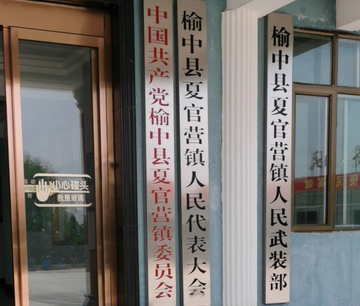 中国共产党榆中县夏官营镇委员会
榆中县夏官营镇人民代表大会
榆中县夏官营镇人民武装部
小心碰头
我是玻璃